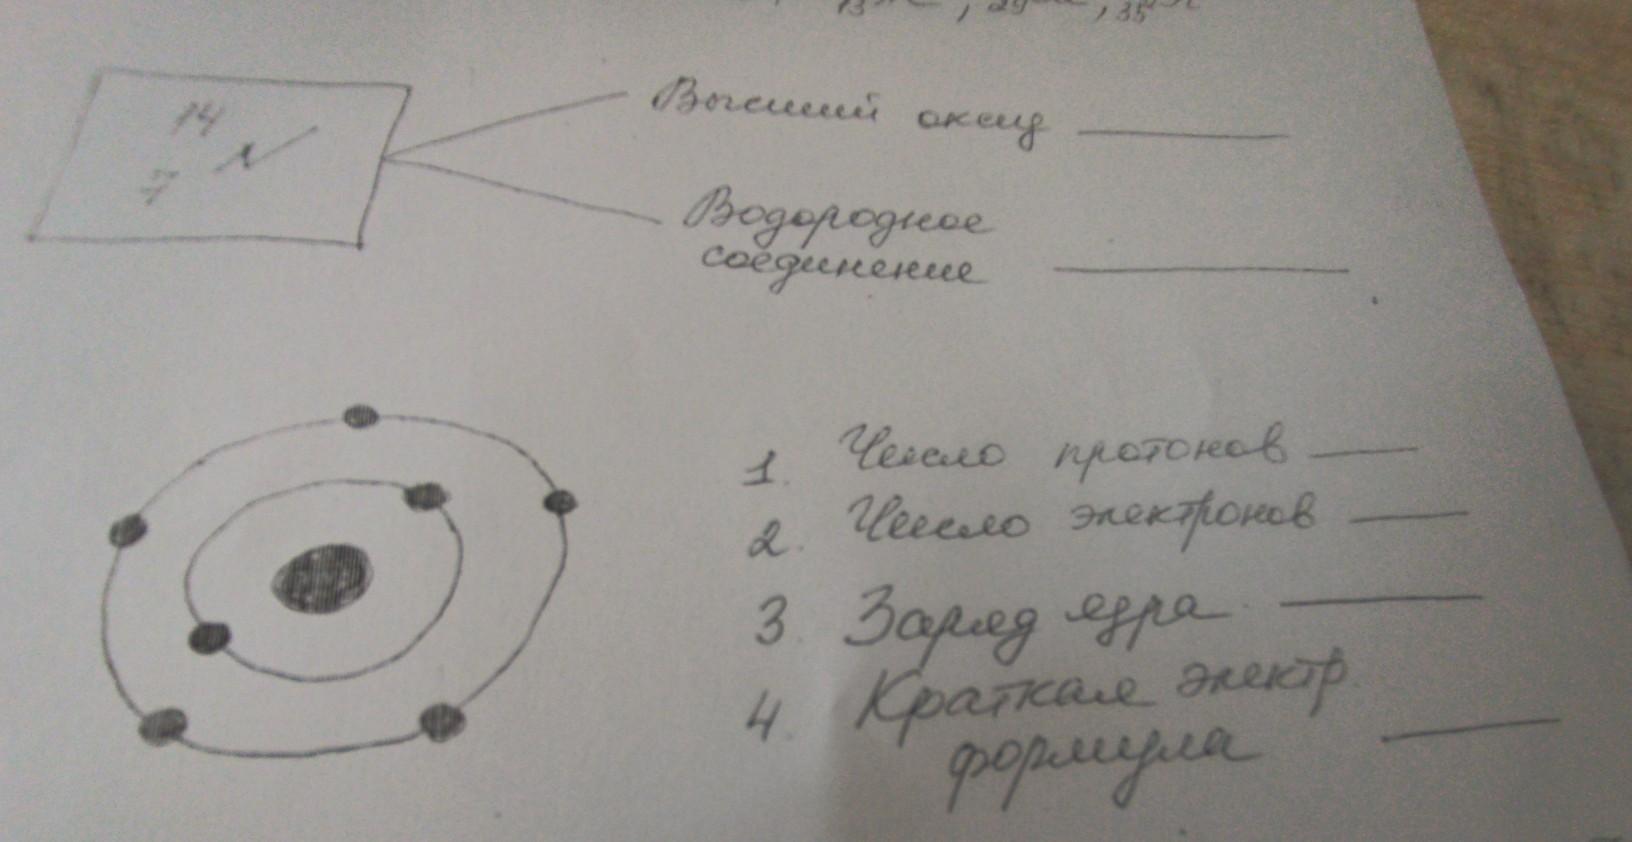 14
7 N
Высший оксид
Водородное
соединение
1. Число протонов
2. Число электронов
3. Заряд ядра
4. Краткая электр
формула